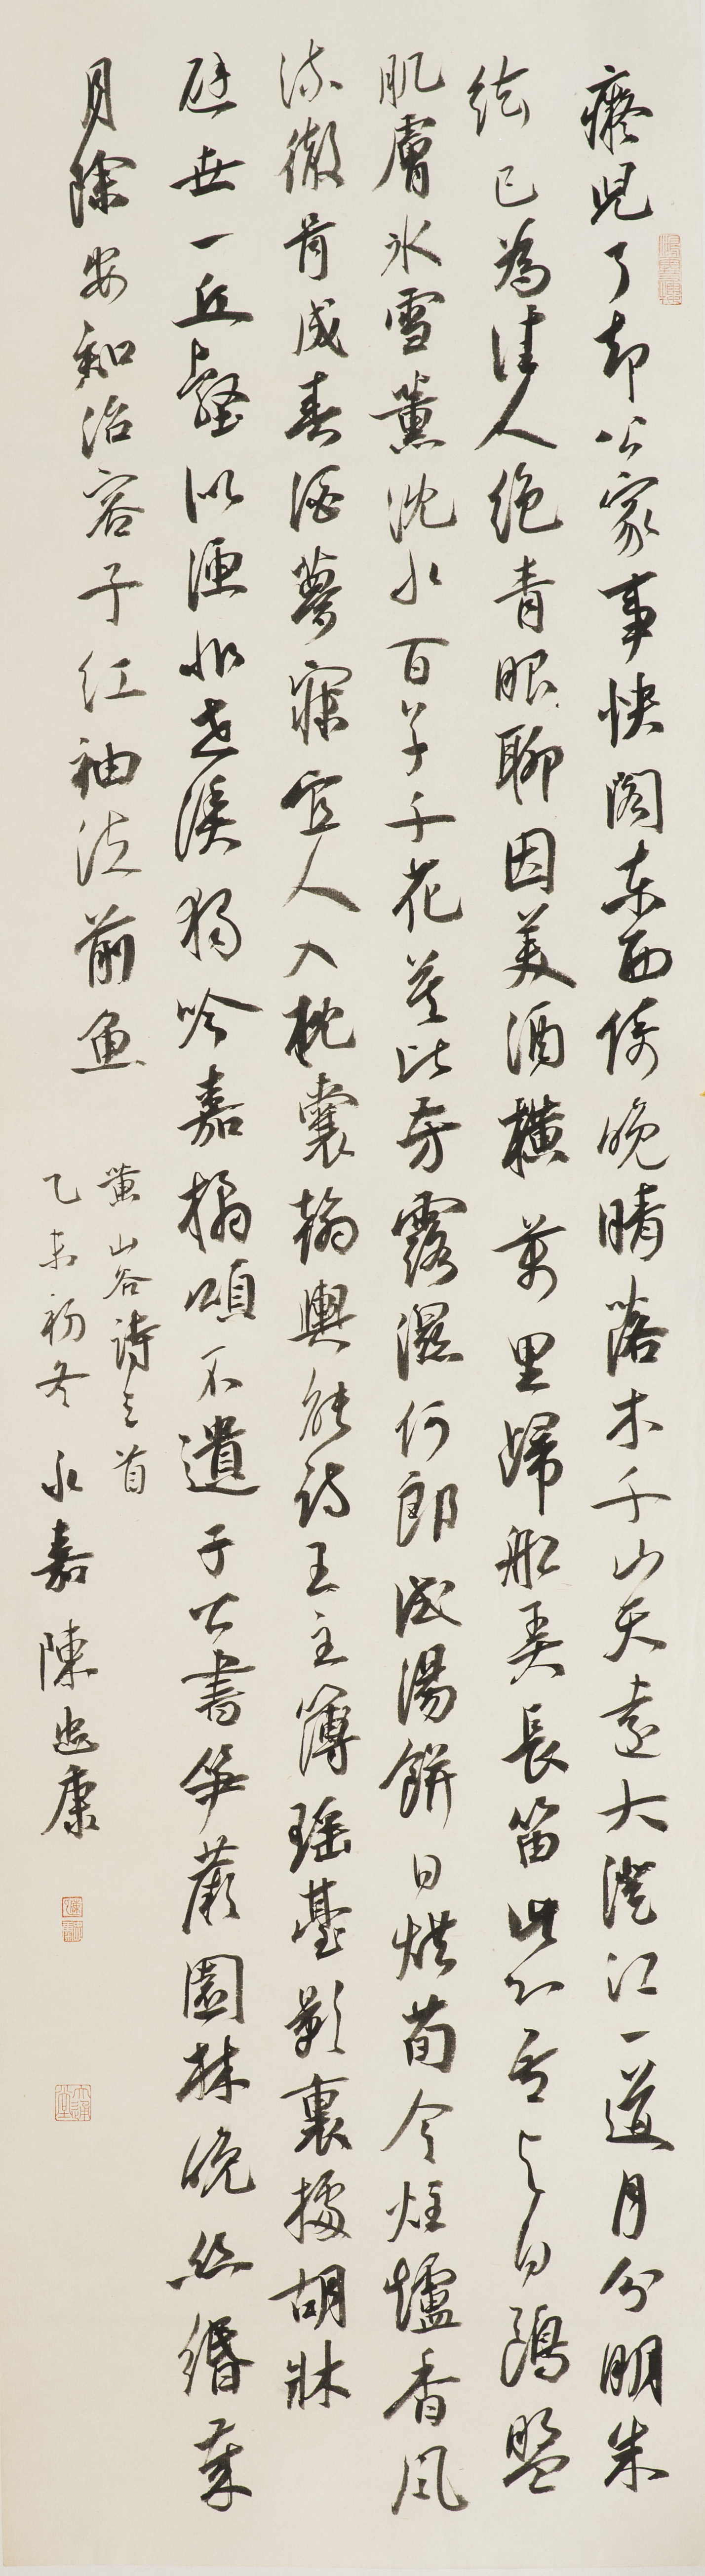 癡兒了却公家事快阁東西倚晚晴落木千山天遠大澄江一道月分明朱
絃已為佳人絶青眼聊因美酒橫萬里歸船弄長笛此心吾與白鷗盟
肌膚冰雪薰沈水百草千花莫比芳露濕何郎試湯餅日烘荀令炷爐香風
流徹骨成春酒夢寐宜人入枕囊輸與能詩王主簿瑤臺影裏據胡牀
避世一丘壑似漁非世漁獨吟嘉橘頌不遺子公書笋蕨園林晚絲緡歲
月除安知冶容子紅袖泣前魚
黄山谷詩三首
乙未初冬 永嘉 陳忠康